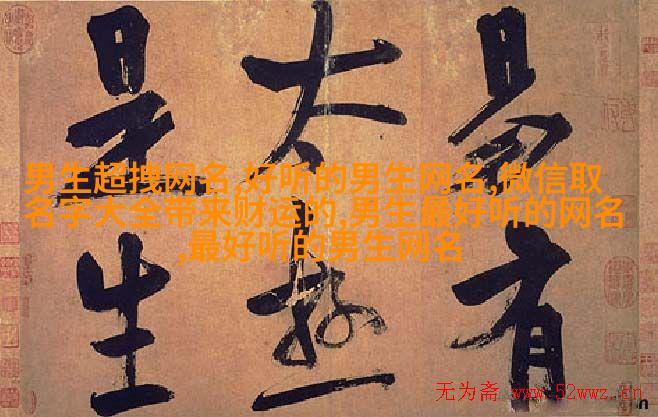 易有
太極
是生
男生超拽网名,好听的男生网名,微信取
名字大全带来财运的,男生最好听的网名
,最好听的男生网名
无为斋 www.52wwz.cn